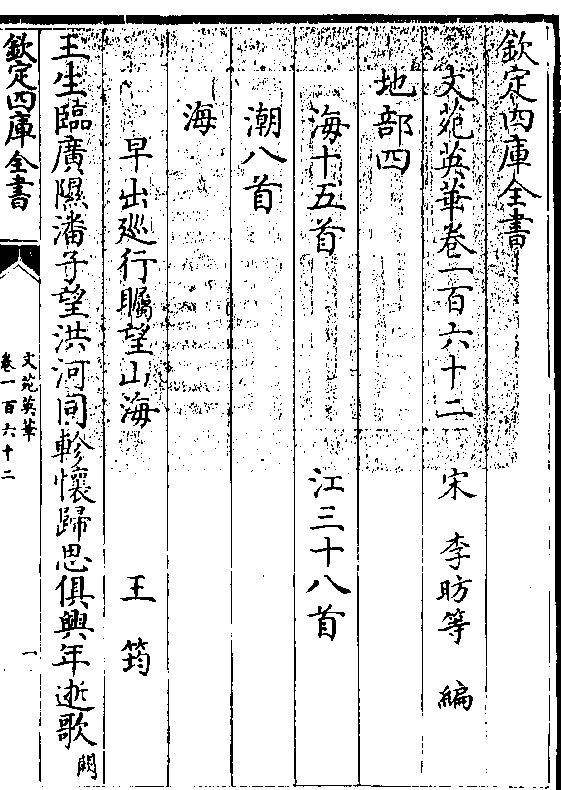 欽定四庫全書
文苑英華卷一百六十二 宋 李昉等 編
地部四
海十五首 江三十八首
潮八首
海
早出廵行矚望山海 王 筠
王生臨廣隰潘子望洪河同軫懷歸思俱興年逝歌闕
欽定四庫全書
文苑英華
卷一百六十二
一